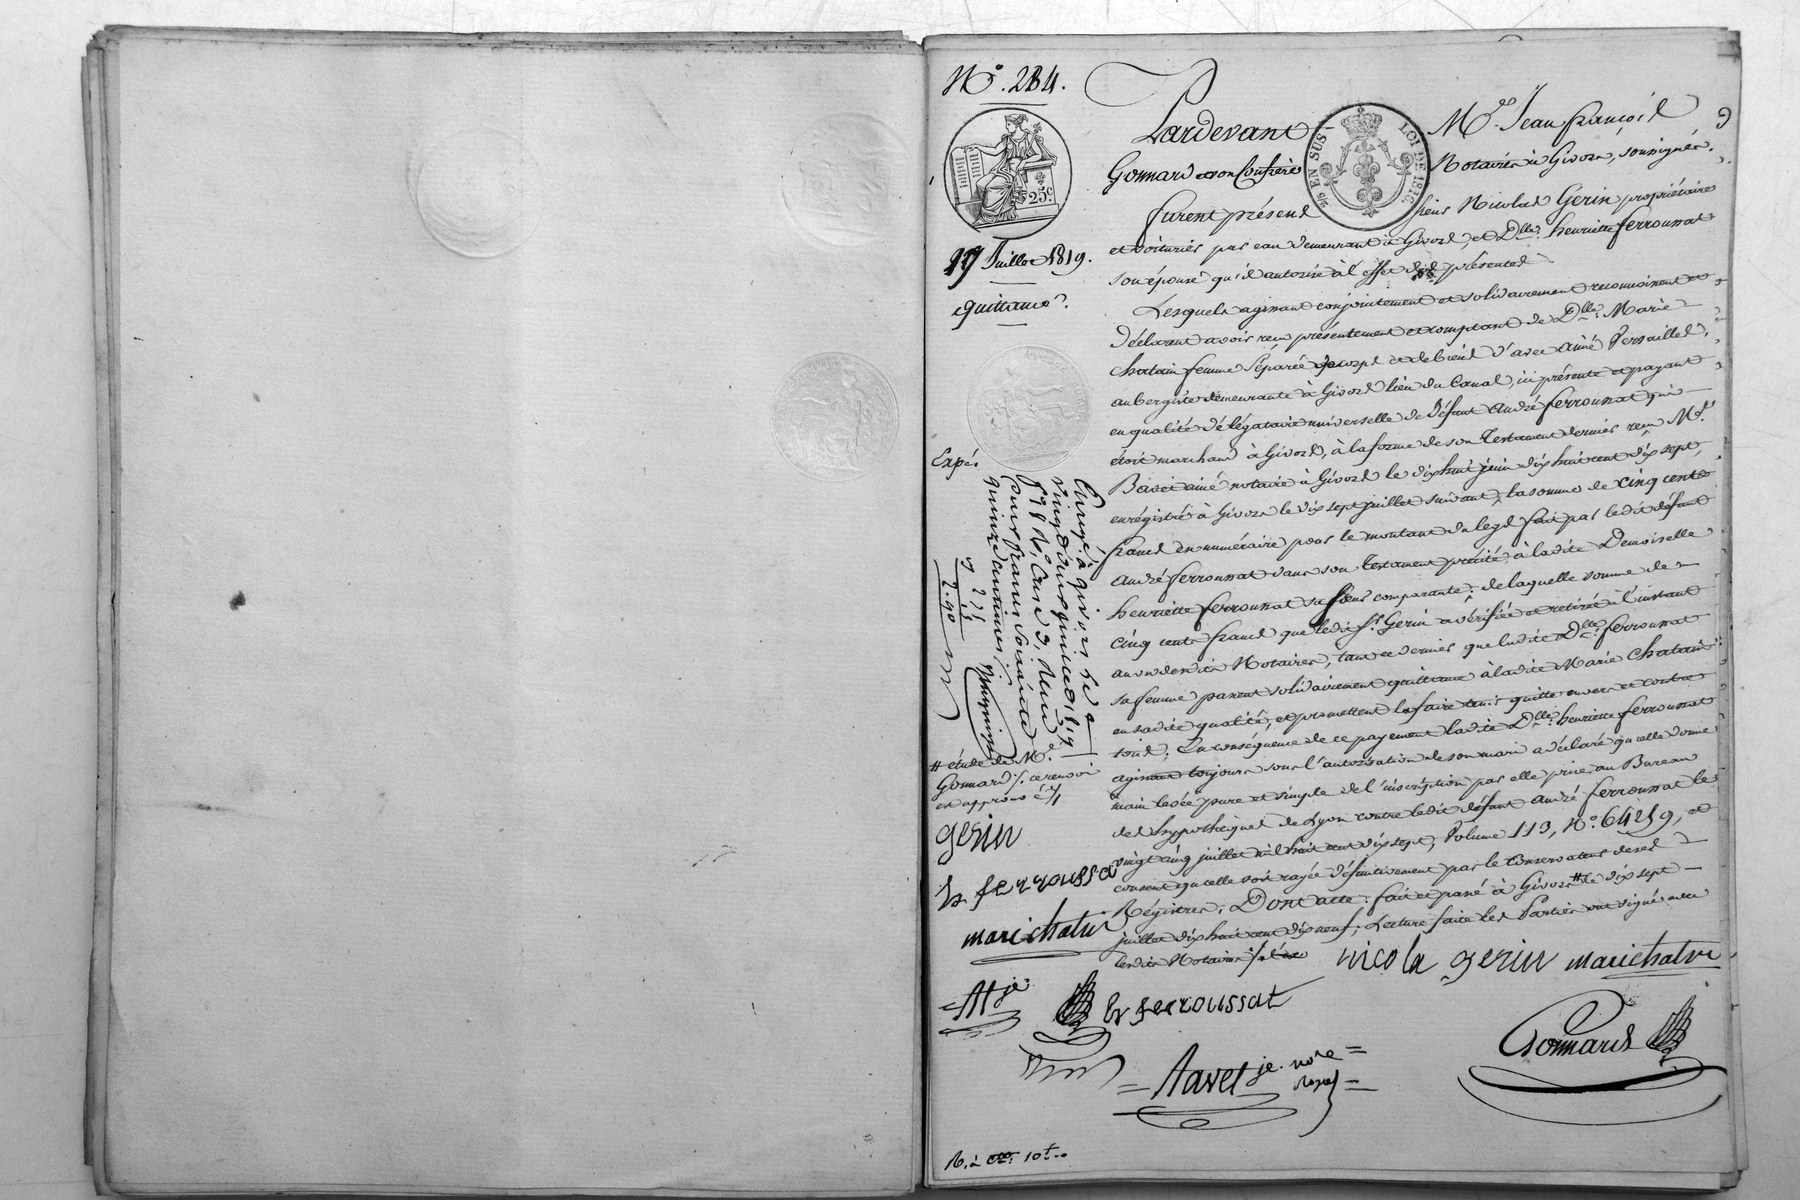 N.º 284.
25.c
17 Juillet 1819.
quittance.
Pardevant Me. Jean françois
Gonnard et son Confrère Notaires à Givors, soussignés.
EN SUS LOI DE 1816
furent présens sieur Nicolas Gerin propriétaire
et voiturier par eau demeurant à Givors, et Dlle. henriette ferroussat
son épouse qu'il autorise à l'effet des présentes
Lesquels agissant conjointement et solidairement reconnoissent et
déclarent avoir reçu présentement et comptant de Dlle. Marie
Chatain femme séparée de corps et de biens d'avec Aimé Versailles,
aubergiste demeurante à Givors lieu du Canal, ici présente et payant
en qualité de légataire universelle de défunt André ferroussat qui
étoit marchand à Givors, à la forme de son Testament dernier reçu Me.
ainé notaire à Givors le dix huit juin dix huit cent dix sept,
enregistré à Givors le dix sept juillet suivant, la somme de cinq cents
francs en numéraire pour le montant du legs fait par ledit défunt
André ferroussat dans son Testament précité, à ladite Demoiselle
henriette ferroussat sa sœur comparante; de laquelle somme de
cinq cents francs que ledit Sr. Gerin a vérifiée et retirée à l'instant
au vu desdits Notaires, tant ce dernier que ladite Dlle. ferroussat
sa femme passent solidairement quittance à ladite Marie Chatain
en sadite qualité, et promettent la faire tenir quitte envers et contre
tous; En conséquence de ce payement ladite Dlle. henriette ferroussat
agissant toujours sous l'autorisation de son mari a déclaré qu'elle donne
main levée pure et simple de l'inscription par elle prise au Bureau
des hypothèques de Lyon contre ledit défunt André ferroussat le
vingt cinq juillet mil huit cent dix sept, Volume 113, N.º 64259, et
consent qu'elle soit rayée définitivement par le Conservateur desdits
Régistres, Dont acte: fait et passé à Givors # le dix sept
juillet dix huit cent dix neuf; Lecture faite les Parties ont signé avec
lesdits Notaires
nicola gerin marichatin
h ferroussat
Gonnard
Navet
Expé.
Enregé. à givors le
vingt deux juillet 1819
fº 98 Rº, Case 3, Reçu
deux francs soixante
quinze centimes,
2.90
# étude de Me.
Gonnard /. ce renvoi
est approuvé /.
gerin
h ferroussat
marichatin